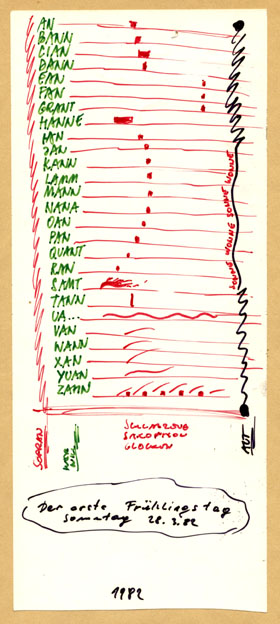 AN
BANN
CIAN
DANN
EAN
FAN
GRANT
HANNE
IAN
JAN
KANN
LAMM
MANN
NANA
OAN
PAN
QUANT
RAN
SAMT
TANN
UA...
VAN
WANN
XAN
YUAN
ZAHN
WONNE WONNE SONNE WONNE
SOPRAN
SCHLAGZEUG
SAXOPHON
GLOCKEN
ALT
Der erste Frühlingstag
Sonntag 28.3.82
1982